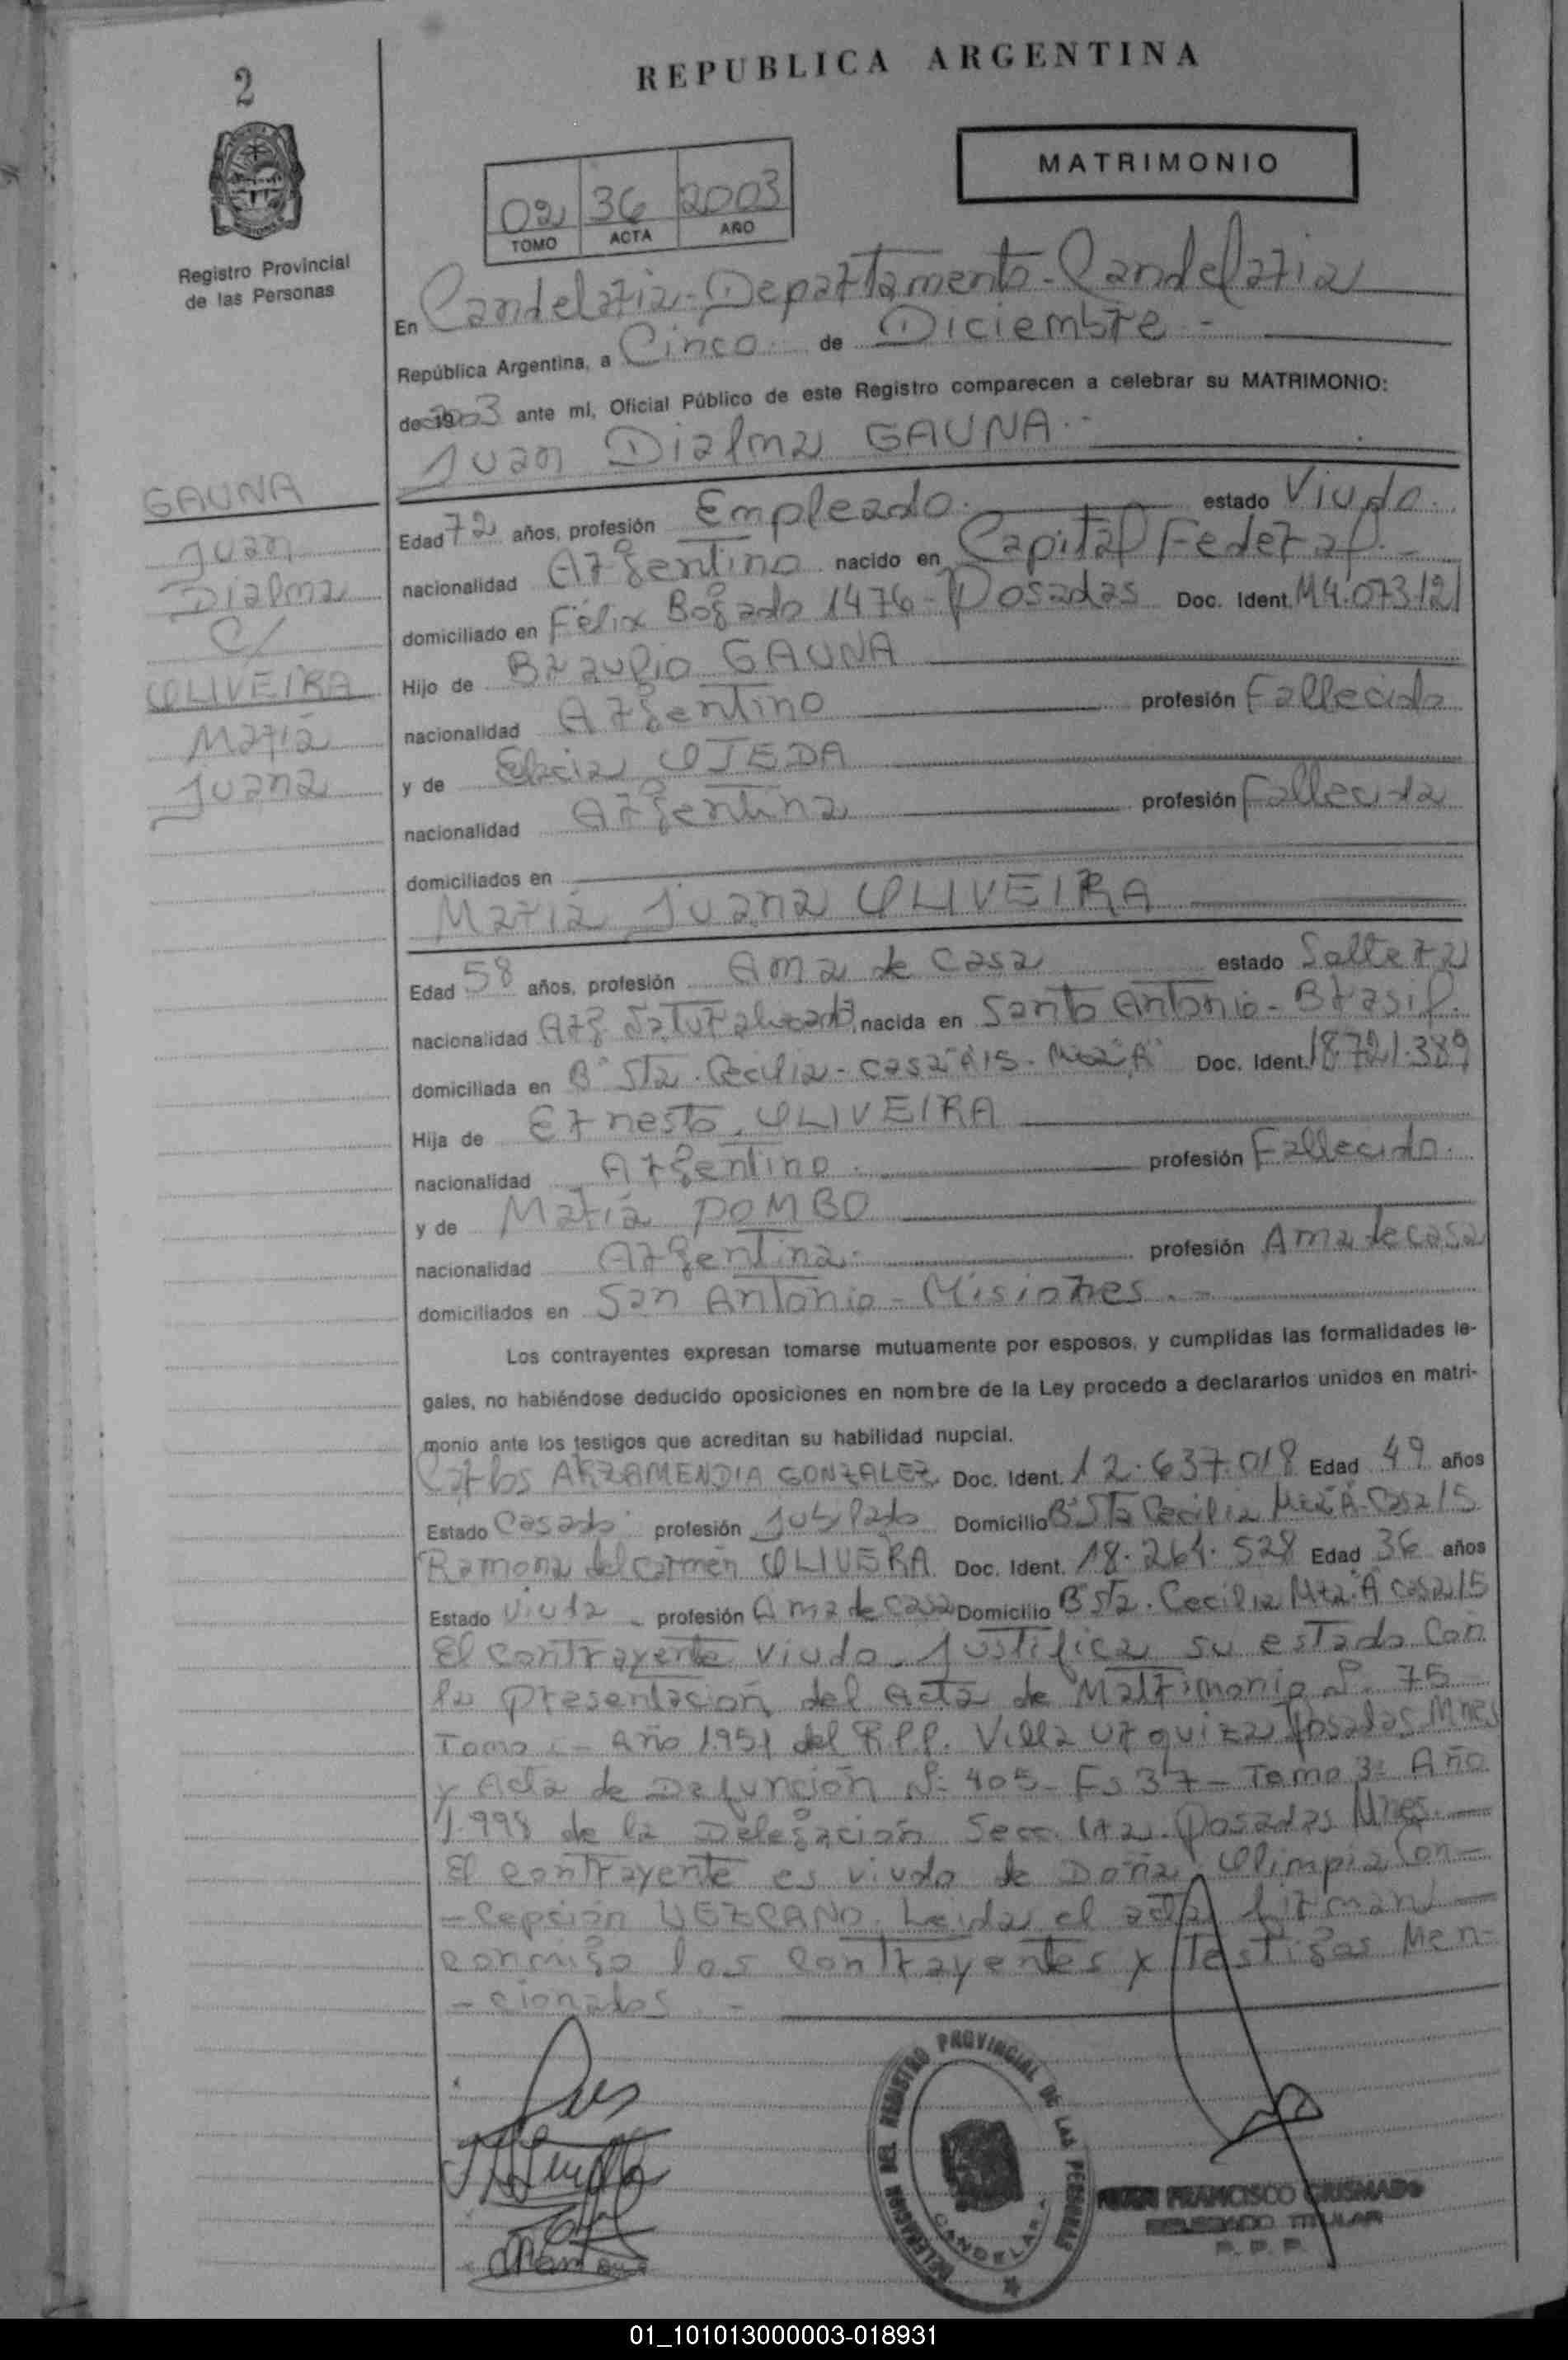 2
REPUBLICA ARGENTINA
MATRIMONIO
02 36 2003
TOMO ACTA AÑO
Registro Provincial
de las Personas
En Candelaria - Departamento - Candelaria
República Argentina, a Cinco de Diciembre -
de 2003 ante mí, Oficial Público de este Registro comparecen a celebrar su MATRIMONIO:
Juan Dialma GAUNA.-
GAUNA
Juan
Dialma
C/
OLIVEIRA
María
Juana
Edad 72 años, profesión Empleado. estado Viudo.
nacionalidad Argentino nacido en Capital Federal.-
domiciliado en Félix Bogado 1476 - Posadas Doc. Ident. M4.073.121
Hijo de Braulio GAUNA
nacionalidad Argentino profesión Fallecido
y de OJEDA
nacionalidad Argentina profesión Fallecida
domiciliados en
María Juana OLIVEIRA
Edad 58 años, profesión Ama de casa estado Soltera
nacionalidad Arg. nacida en Santo Antonio - Brasil.
domiciliada en B° Sta. Cecilia - casa 15 - Mz "A" Doc. Ident. 18.721.389
Hija de Ernesto OLIVEIRA
nacionalidad Argentino. profesión Fallecido.
y de María POMBO
nacionalidad Argentina. profesión Ama de casa
domiciliados en San Antonio - Misiones.-
Los contrayentes expresan tomarse mutuamente por esposos, y cumplidas las formalidades le-
gales, no habiéndose deducido oposiciones en nombre de la Ley procedo a declararlos unidos en matri-
monio ante los testigos que acreditan su habilidad nupcial.
Carlos ARZAMENDIA GONZALEZ Doc. Ident. 12.637.018 Edad 49 años
Estado Casado profesión Jubilado Domicilio B° Sta Cecilia Mz "A" Casa 15
Ramona del Carmen OLIVERA Doc. Ident. 18.264.528 Edad 36 años
Estado Viuda profesión Ama de casa Domicilio B° Sta. Cecilia Mza "A" casa 15
El contrayente viudo justifica su estado con
la presentación del Acta de Matrimonio N° 75
Tomo - Año 1951 del R.P.P. Villa Urquiza Posadas Mnes
y Acta de Defunción N° 405 - Fs 37 - Tomo 3° Año
1.998 de la Delegación Secc. 1ra. Posadas Mnes.
El contrayente es viudo de Doña Olimpia Con-
-cepción LEZCANO. Leida el acta firman
conmigo los contrayentes y testigos Men-
-cionados.-
DELEGACION DEL REGISTRO PROVINCIAL DE LAS PERSONAS
CANDELARIA
FRANCISCO GRISMADO
DELEGADO TITULAR
R. P. P.
01_101013000003-018931